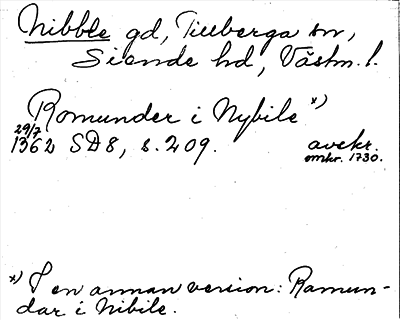 Nibble gd, Tillberga sn,
Siende hd, Västm. l.
Romunder i Nybile *)
29/7
1362 SD8, s. 209.
avskr.
omkr. 1730.
*) I en annan version: Ramun-
dar i Nibile.